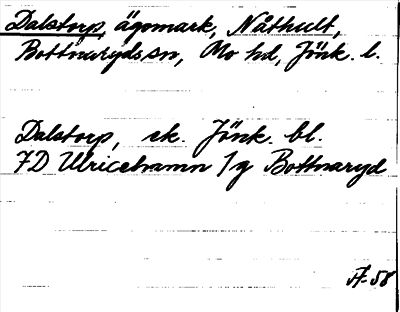 Dalstorp, ägomark, Nåthult,
Bottnaryds sn, Mo hd, Jönk. l.
Dalstorp, ek. Jönk. bl.
7D Ulricehamn 1g Bottnaryd
58